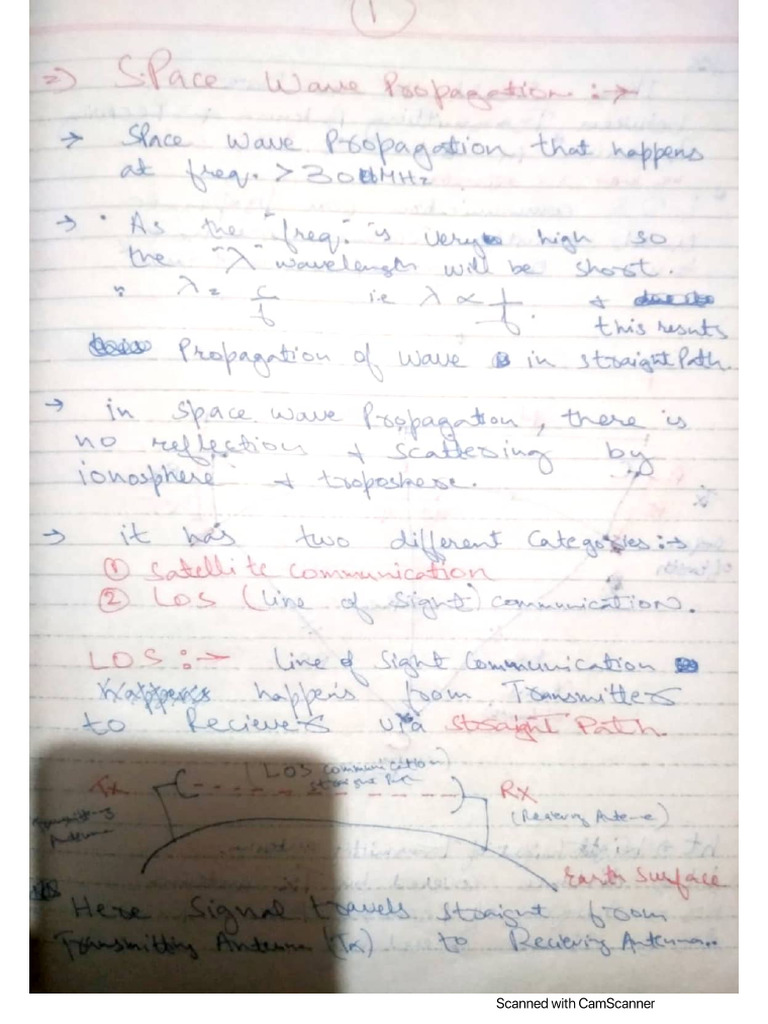 1
=> Space Wave Propagation :->
-> Space wave Propagation, that happens
at freq. > 30 MHz
-> • As the "freq." is very high so
the "λ" wavelength will be short.
∵ λ = c/f i.e λ ∝ 1/f. &
this results
Propagation of wave in straight Path.
-> in space wave Propagation, there is
no reflection & scattering by
ionosphere & troposhere.
-> it has two different Categories :->
① Satellite communication
② LOS (line of sight) communication.
LOS :-> line of sight communication
happens from Transmitters
to Recievers via straight Path.
(LOS communication)
straight Path
Tx
Rx
Transmitting
Antenna
(Recieving Antenna)
Earth Surface
Here Signal travels straight from
Transmitting Antenna (Tx) to Recieving Antenna..
Scanned with CamScanner